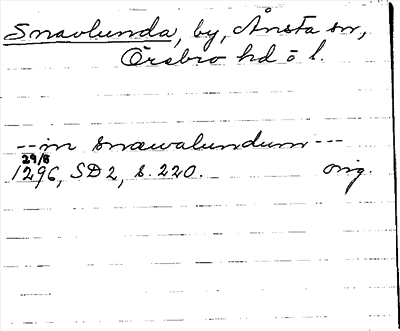 Snavlunda, by, Ånsta sn,
Örebro hd o l.
--in snæwalundum---
29/8
1296, SD 2, s. 220. orig.